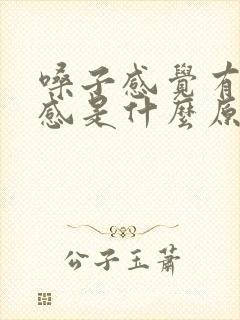 嗓子感覺有
感是什麼原
公子玉蕭